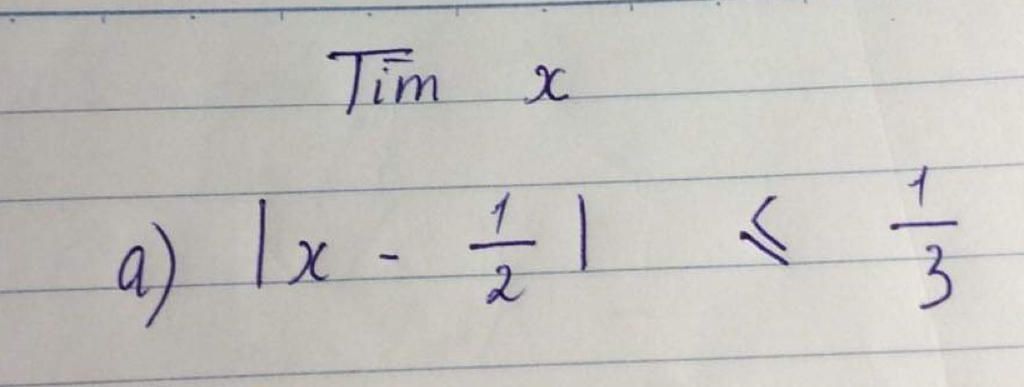 Tìm x
a) |x - 1/2| ⩽ 1/3